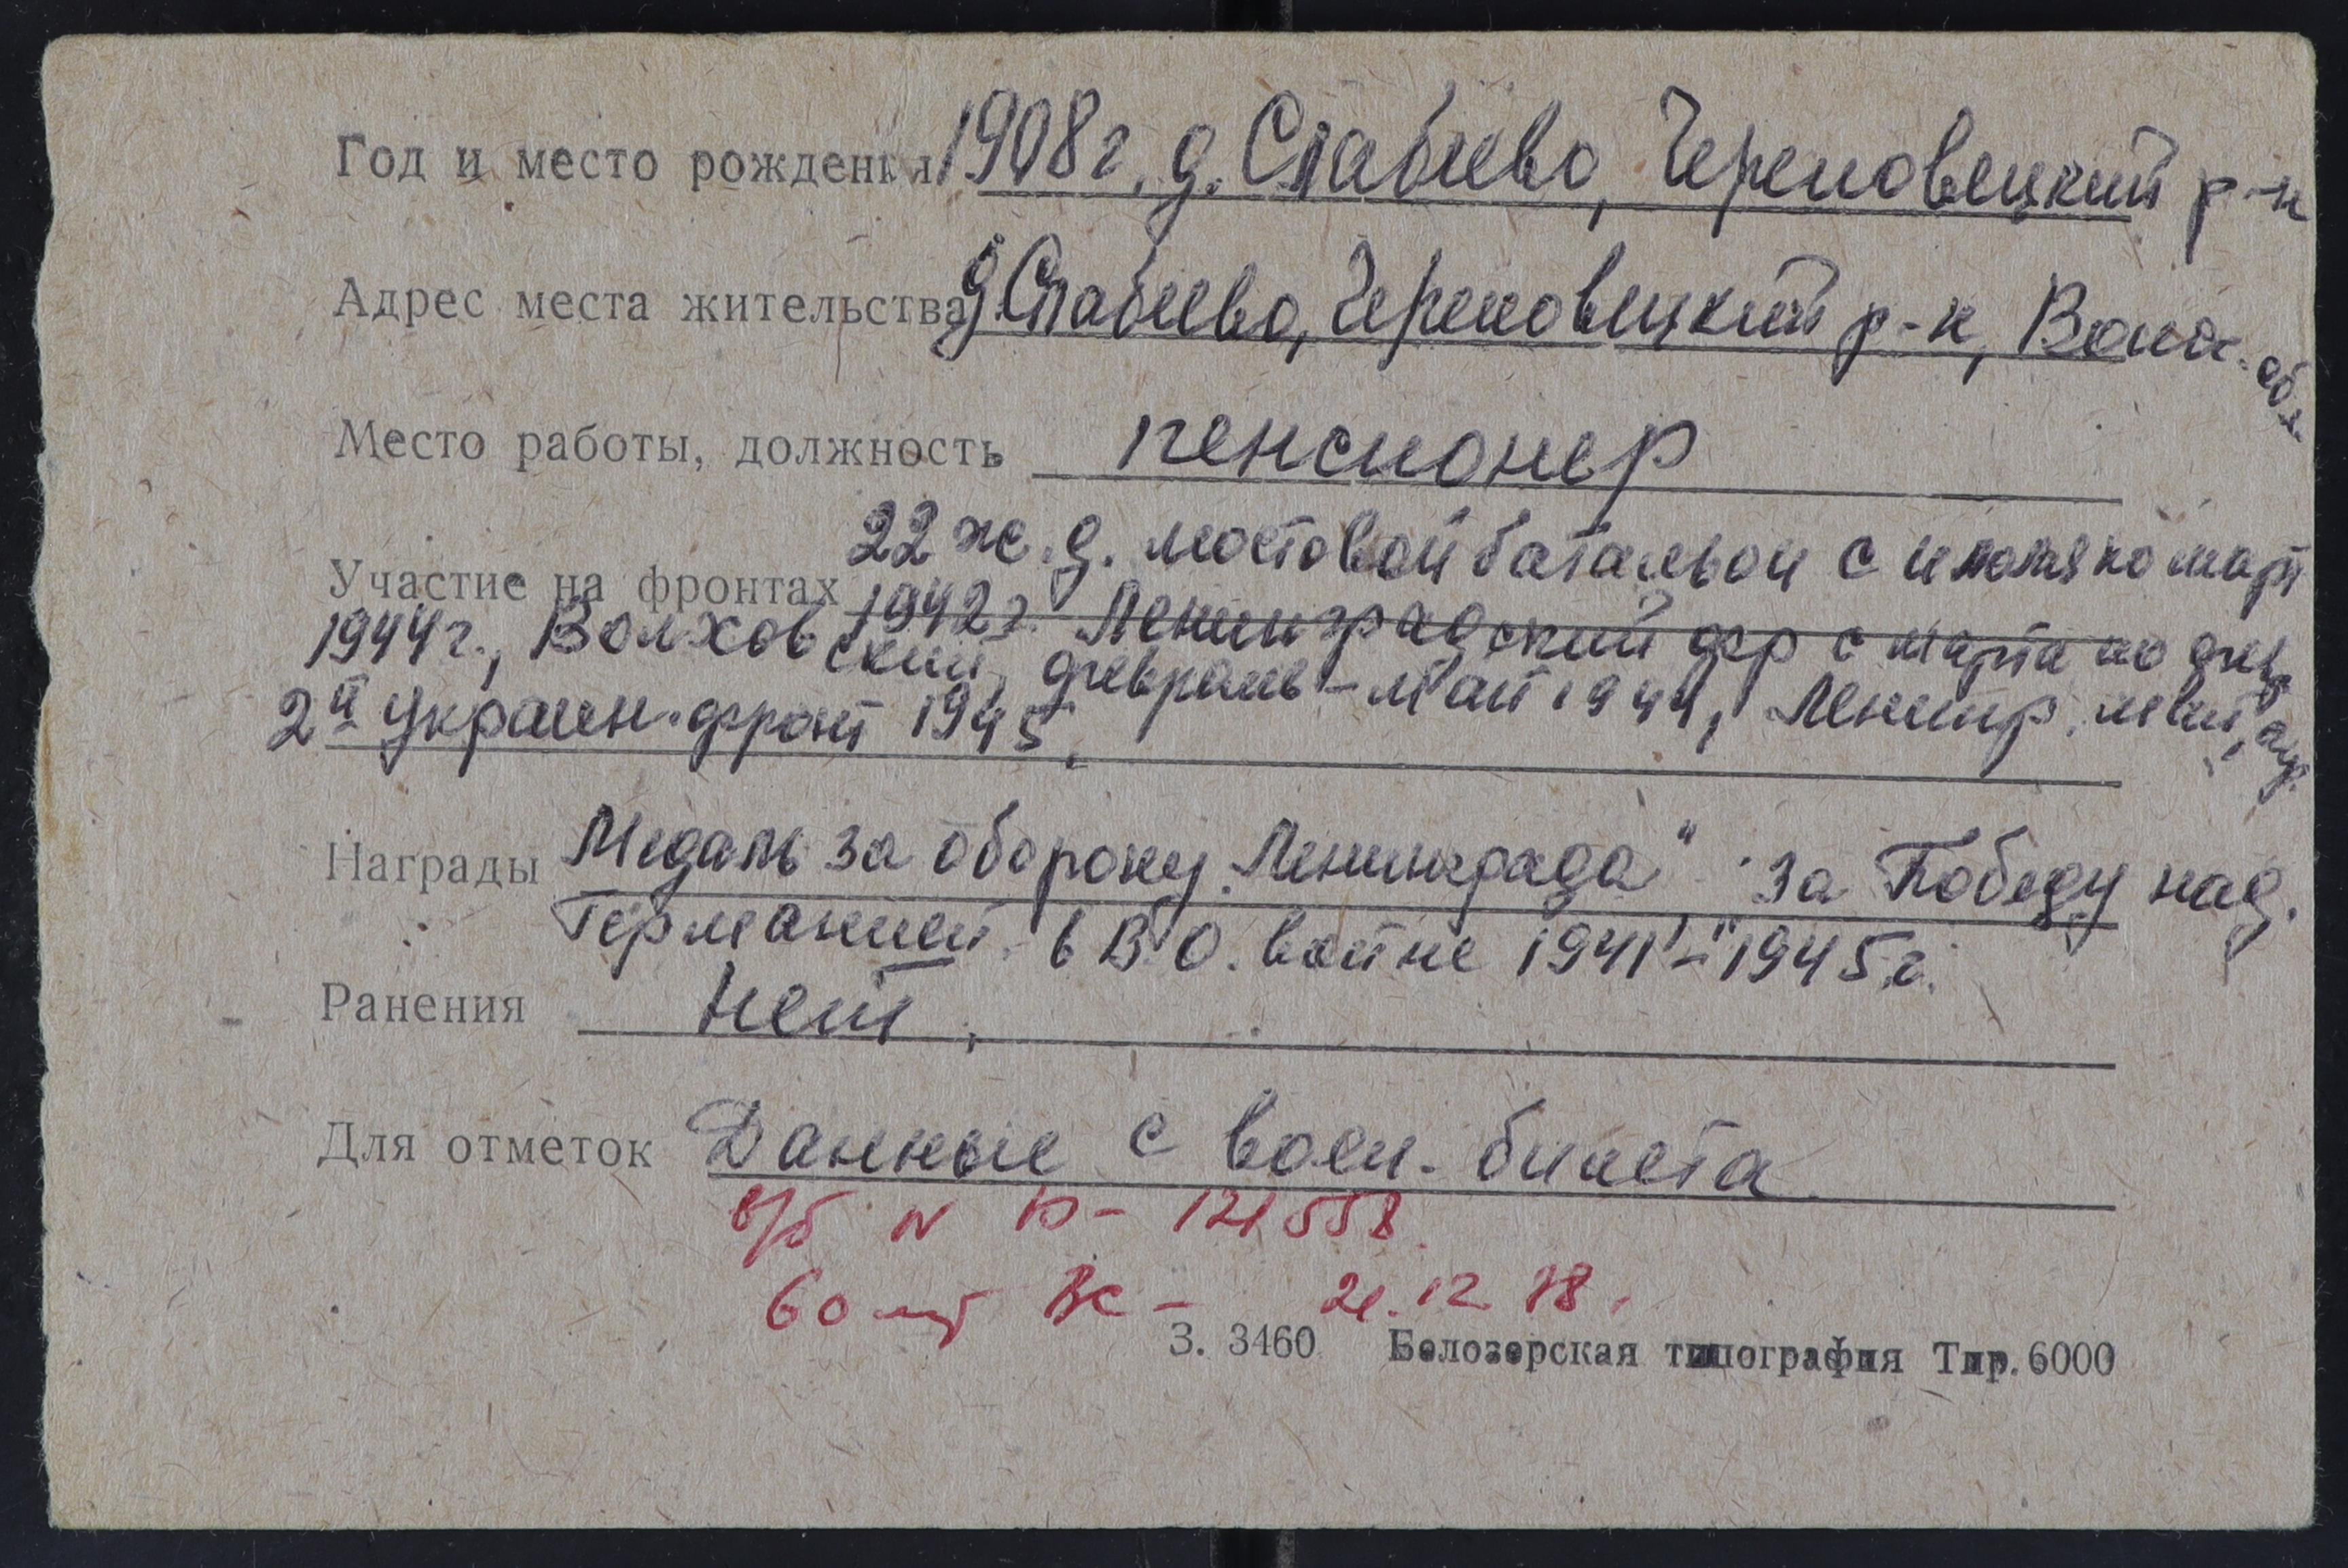 Год и место рождения 1908 г. д. Слабеево, Череповецкий р-н
Адрес места жительства д. Слабеево, Череповецкий р-н, Волог. обл.
Место работы, должность пенсионер
22 ж.д. мостовой батальон с июля по март
Участие на фронтах 1942 г. Ленинградский фр с марта по февр
1944 г., Волховский, февраль - май 1944, Ленингр. май, апр.
2й Украин. фронт 1945.
Награды Медаль за оборону „Ленинграда" за Победу над.
Германией в В.О. войне 1941-1945 г.
Ранения нет,
Для отметок Данные с воен. билета
в/б N Ю - 121558
60 лет ВС - 21.12.78.
З. 3460 Белозерская типография Тир. 6000